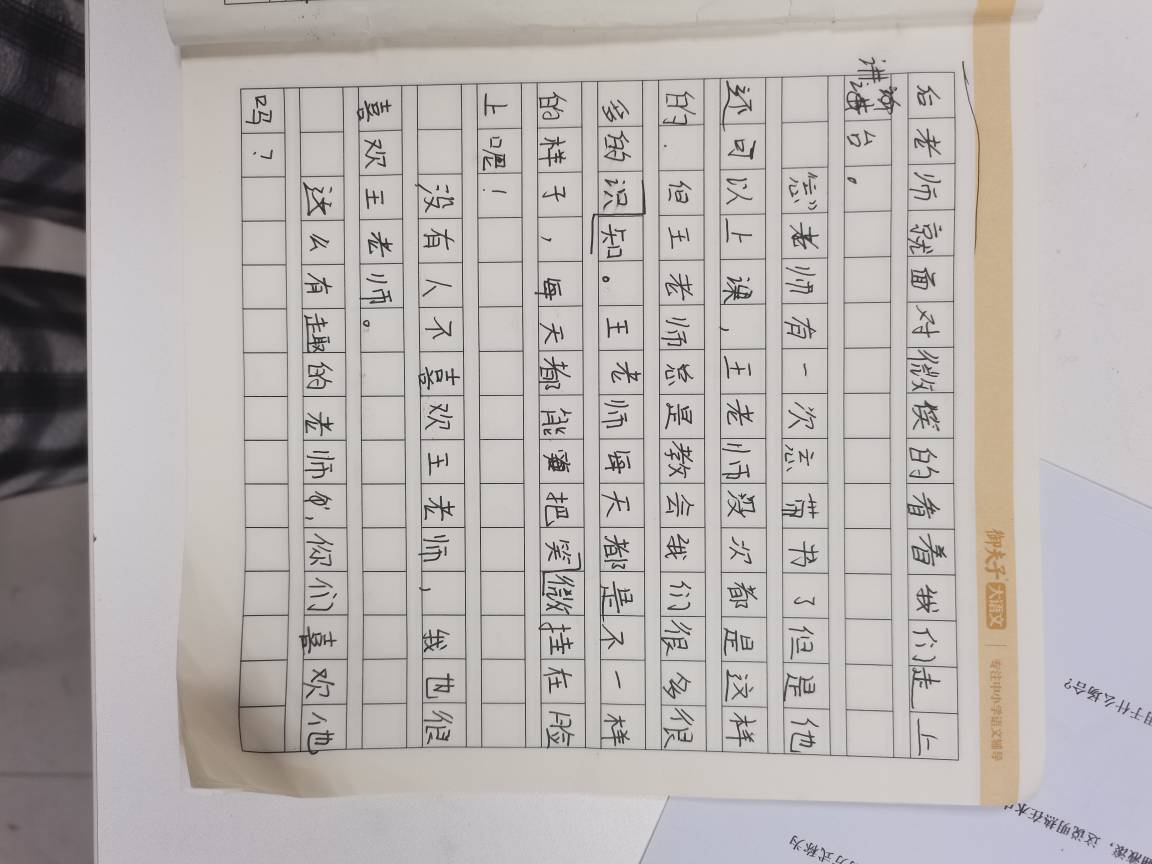 御夫子 大语文 | 专注中小学语文辅导
后老师就面对微笑的看着我们走上
讲台。
老师有一次忘带书了但是他
还可以上课，王老师没次都是这样
的.但王老师总是教会我们很多很
多的识知。王老师每天都是不一样
的样子，每天都能把笑微挂在脸
上呢！
没有人不喜欢王老师，我也很
喜欢王老师。
这么有趣的老师,你们喜欢他
吗？
用于什么场合?
，这说明热在水
方式称为